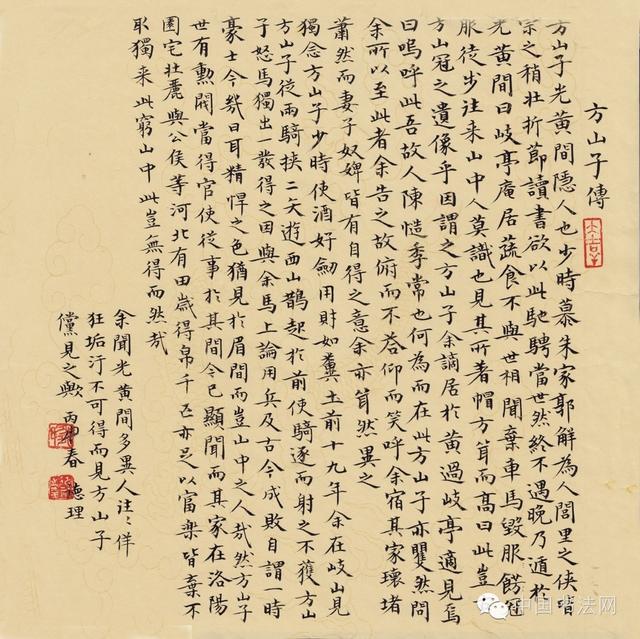 方山子傳
方山子光黃間隱人也少時慕朱家郭解為人閭里之俠皆
宗之稍壯折節讀書欲以此馳騁當世然終不遇晚乃遁於
光黃間曰岐亭庵居蔬食不與世相聞棄車馬毀服餝冠
服徒步往來山中人莫識也見其所著帽方耸而高曰此豈
方山冠之遺像乎因謂之方山子余謫居於黃過岐亭適見焉
曰嗚呼此吾故人陳慥季常也何為而在此方山子亦矍然問
余所以至此者余告之故俯而不答仰而笑呼余宿其家環堵
蕭然而妻子奴婢皆有自得之意余亦耸然異之
獨念方山子少時使酒好劍用財如糞土前十九年余在岐山見
方山子從兩騎挾二矢遊西山鵲起於前使騎逐而射之不獲方山
子怒馬獨出一發得之因與余馬上論用兵及古今成敗自謂一時
豪士今幾日耳精悍之色猶見於眉間而豈山中之人哉然方山子
世有勳閥當得官使從事於其間今已顯聞而其家在洛陽
園宅壯麗與公侯等河北有田歲得帛千匹亦足以富樂皆棄不
取獨來此窮山中此豈無得而然哉
余聞光黃間多異人往〻佯
狂垢汙不可得而見方山子
儻見之歟丙申春 德理
中国书法网